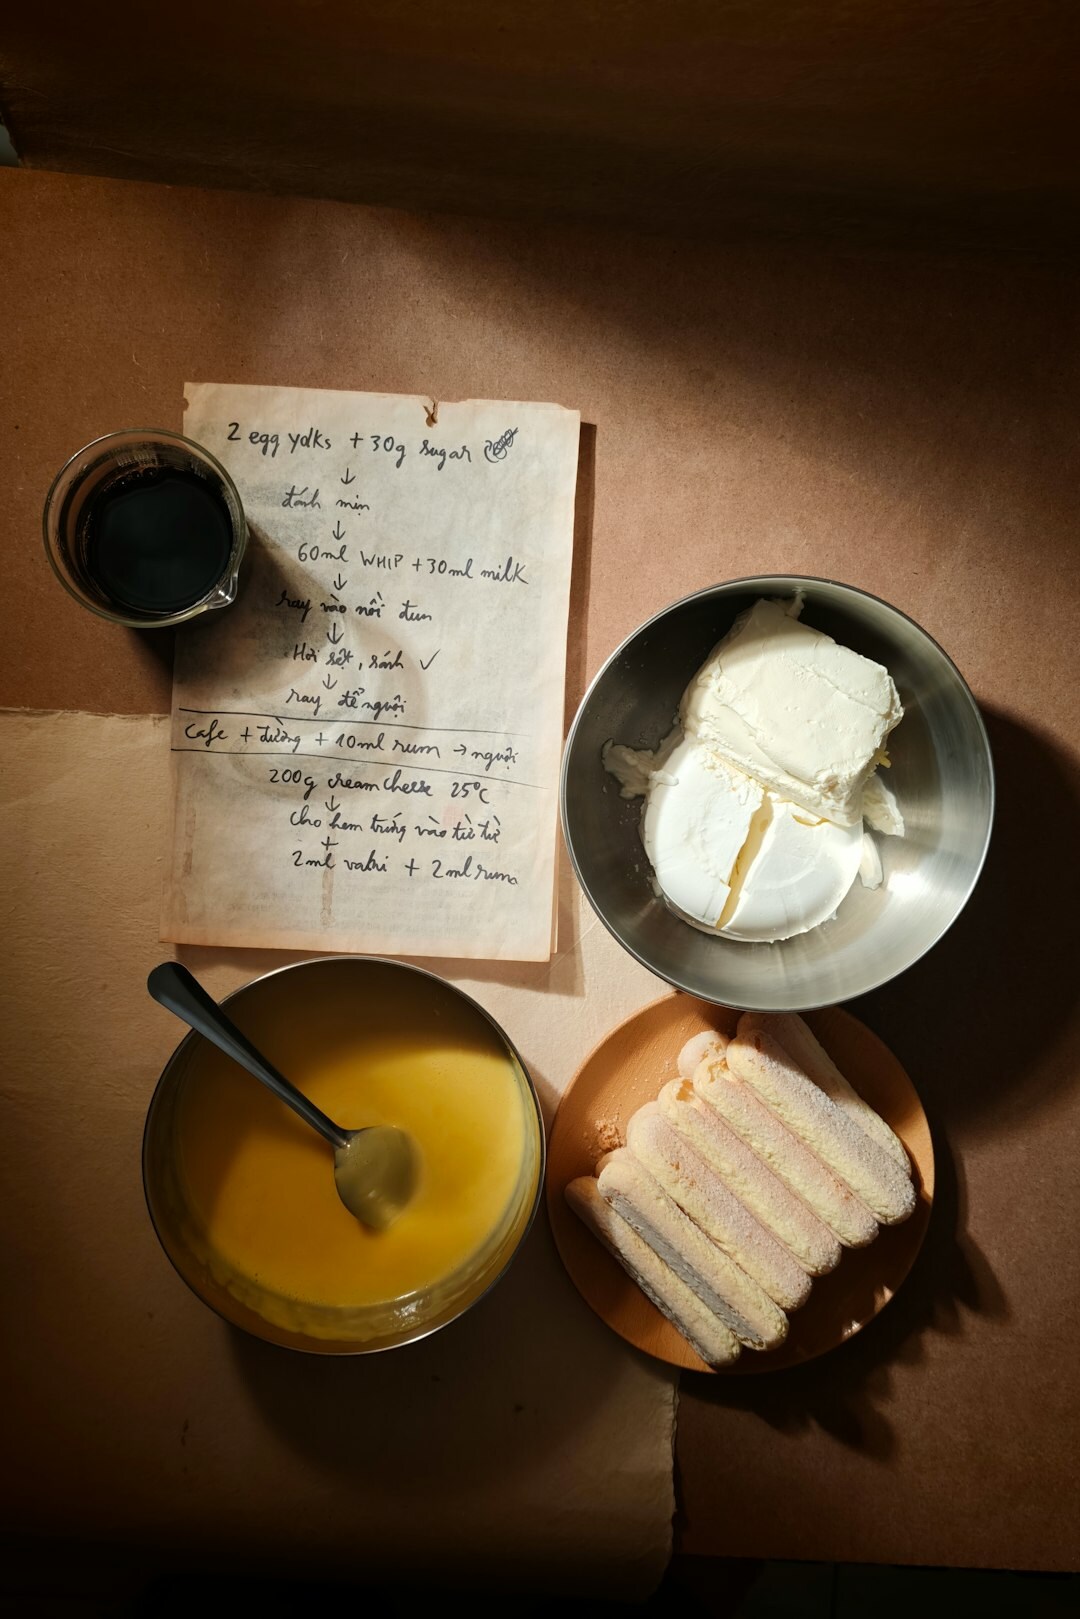 2 egg yolks + 30g sugar
↓
đánh mịn
↓
60ml WHIP + 30ml milk
↓
ray vào nồi đun
↓
Hơi sệt, sánh ✓
↓
ray để nguội
Cafe + đường + 10ml rum → nguội
200g cream cheese 25°C
↓
cho hem trứng vào từ từ
+
2ml vani + 2ml rum